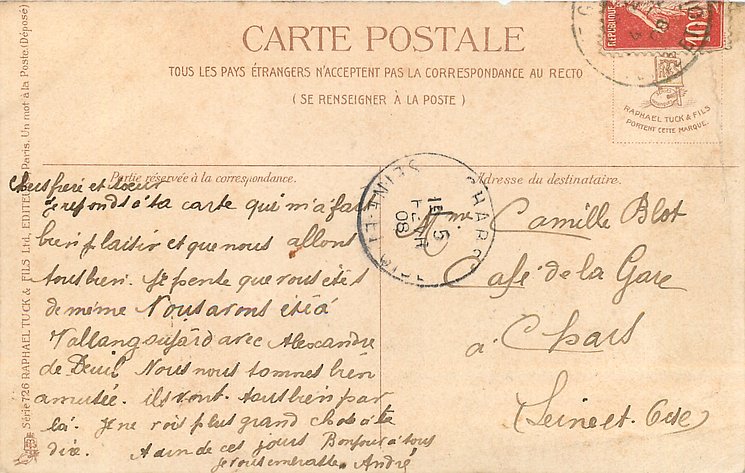 CARTE POSTALE
TOUS LES PAYS ÉTRANGERS N'ACCEPTENT PAS LA CORRESPONDANCE AU RECTO
(SE RENSEIGNER À LA POSTE)
RAPHAEL TUCK & FILS
PORTENT CETTE MARQUE.
Série 726 RAPHAEL TUCK & FILS Ltd, EDITEURS Paris. Un mot à la Poste. (Déposé)
Partie réservée à la correspondance.
Adresse du destinataire.
Chers frère et soeur
Je reponds à ta carte qui m'a fait
bien plaisir et que nous allons
tous bien. Je pense que vous êtes
de même Nous avons été à
avec Alexandre
de Deuil Nous nous sommes bien
amusée. ils vont tous bien par
là. Je ne vois plus grand chose à te
dire. A un de ces jours Bonjour à tous
Je vous embrasse. André
CHARS
SEINE-ET-OISE
15
5
08
Mme Camille Blot
Café de la Gare
à Chars
Seine et Oise